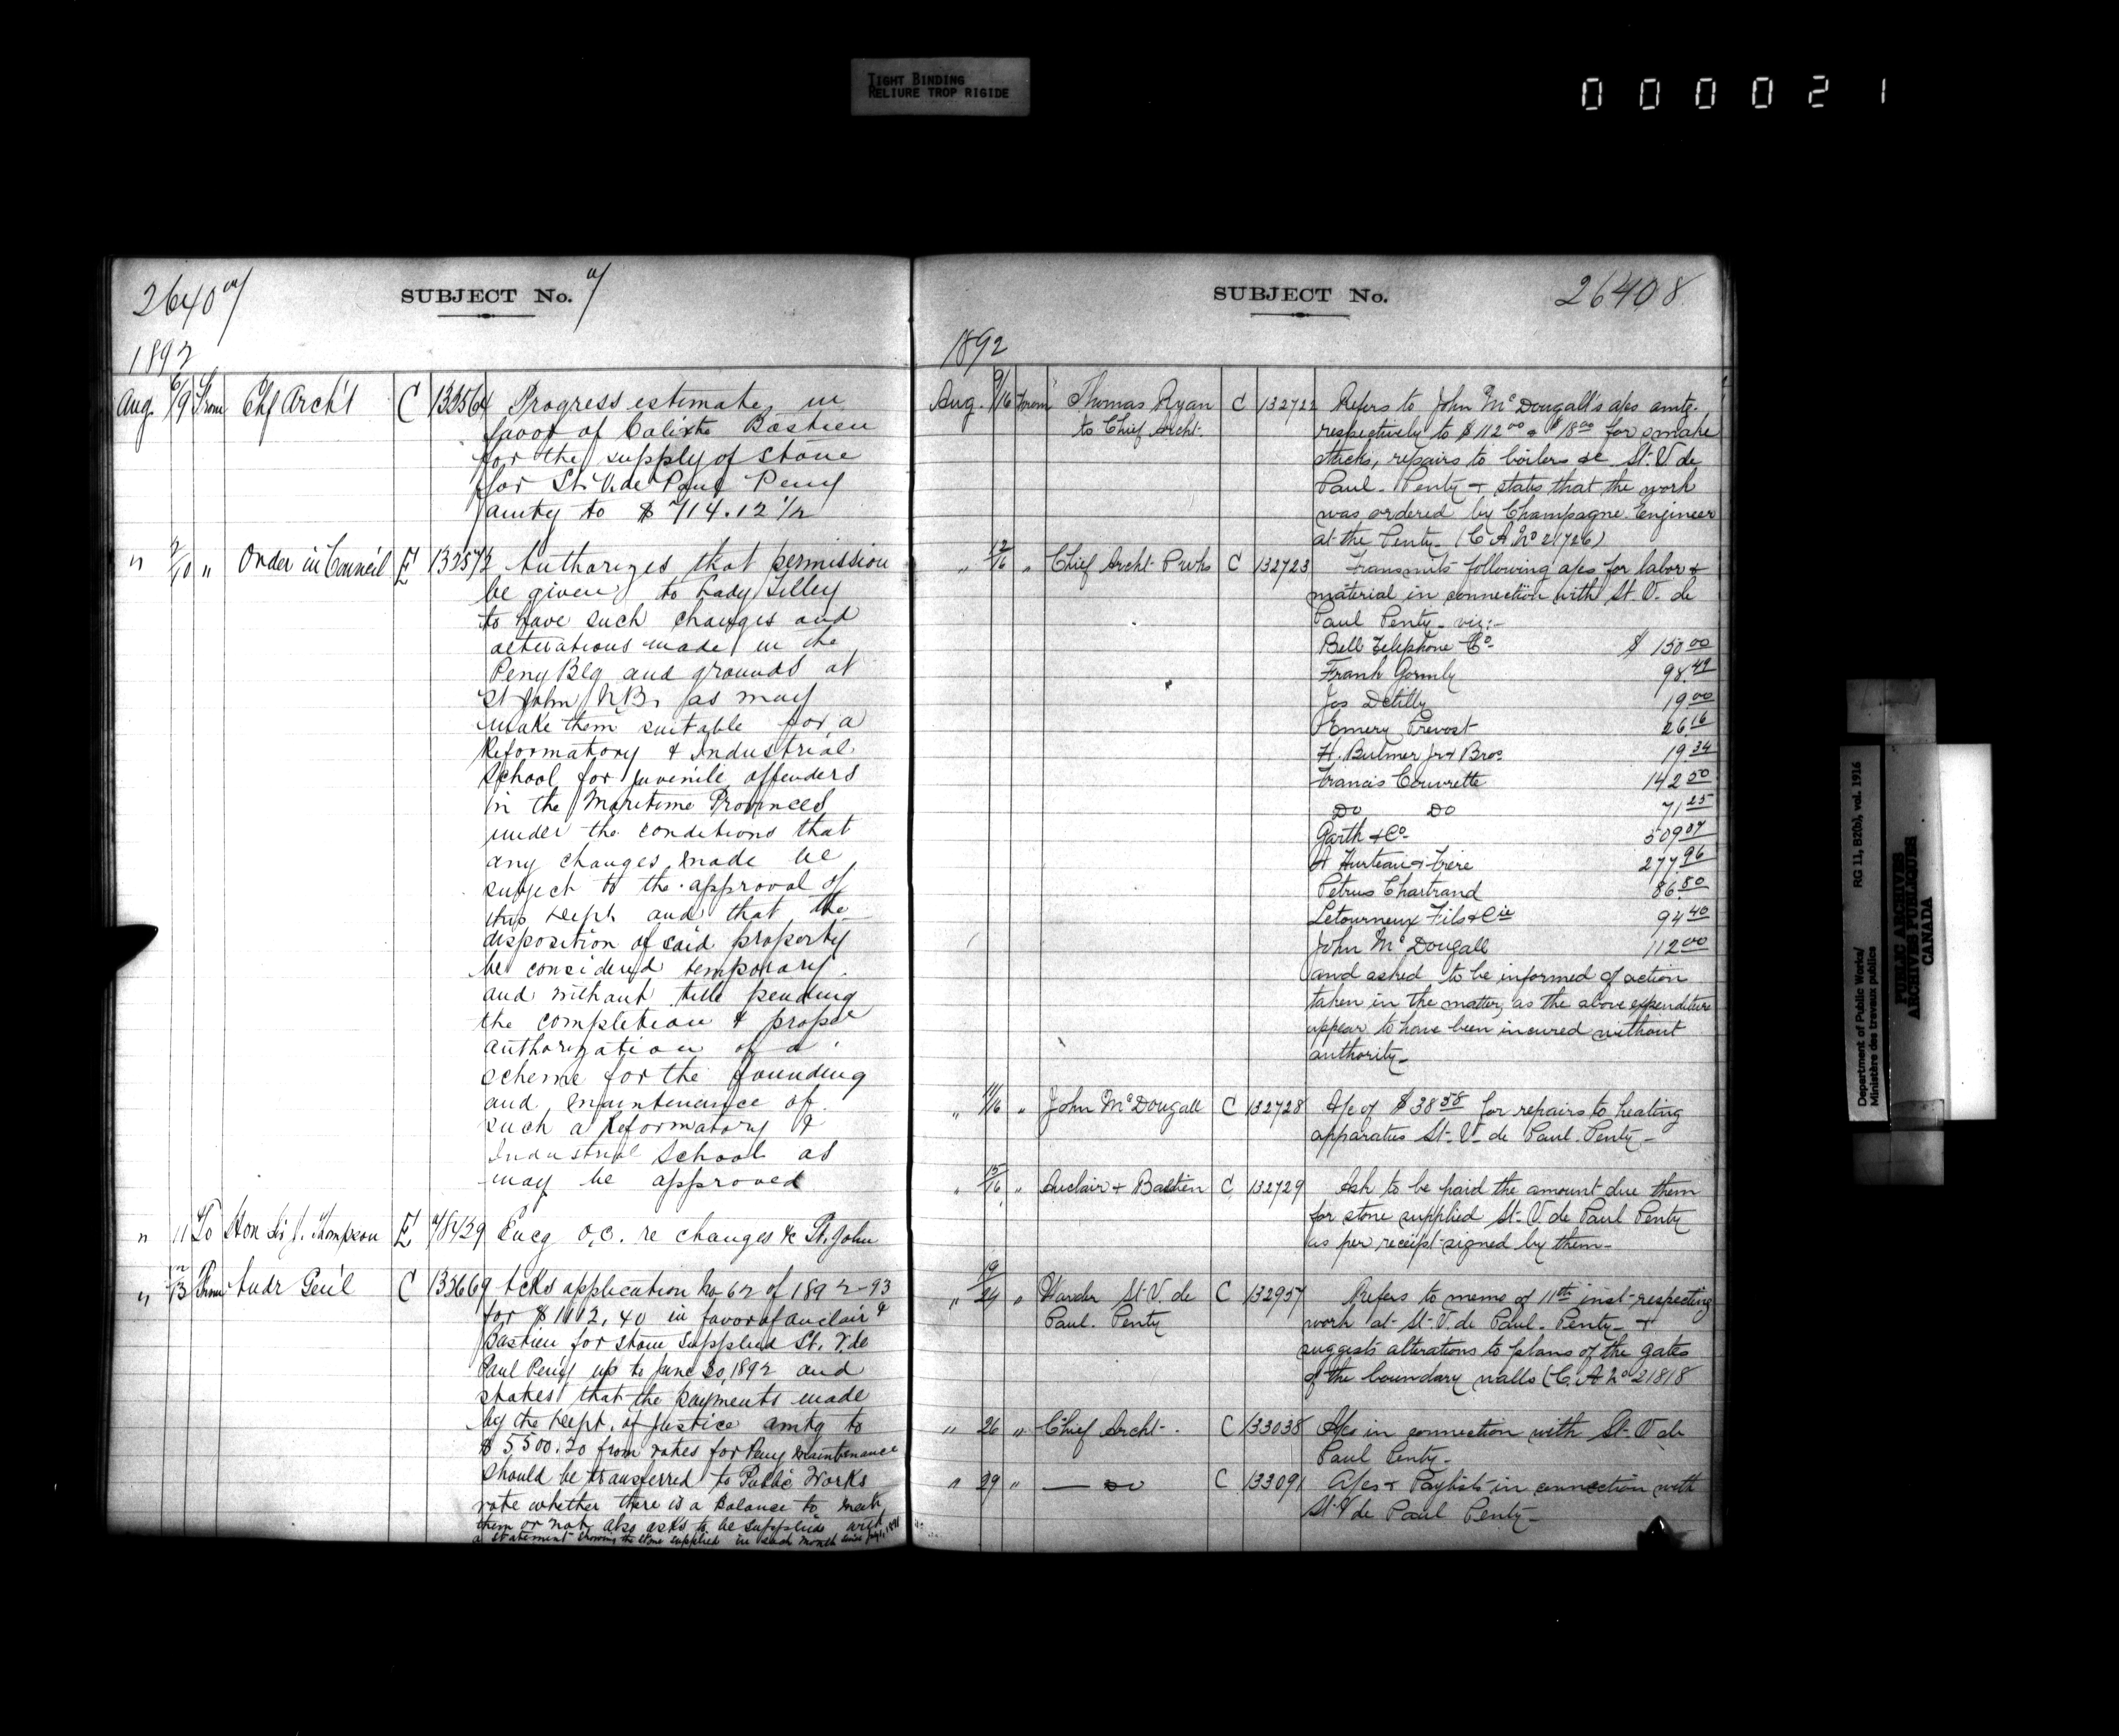 TIGHT BINDING
RELIURE TROP RIGIDE
000021
2640 7
SUBJECT No. 7
1892
Aug. 6/9 From Chf Arch't C 132564 Progress estimate in
favor of Calixte Bastien
for the supply of stone
for St. V. de Paul Peny
amtg to $ 714.12 1/2
" 2/10 " Order in Council E 132573 Authorizes that permission
be given to Lady Tilley
to have such changes and
alterations made in the
Peny Blg and grounds at
St John N.B. as may
make them suitable for a
Reformatory & Industrial
School for juvenile offenders
in the Maritime Provinces
under the conditions that
any changes made be
subject to the approval of
this Dept. and that the
disposition of said property
be considered temporary
and without title pending
the completion & proper
authorization of a
scheme for the founding
and maintenance of
such a Reformatory &
Industrial School as
may be approved
" 11 To Hon Sir J. Thompson E 78429 Encg O.C. re changes &c St. John
" 12/13 From Audr Gen'l C 132669 Acks application No 62 of 1892-93
for $1112.40 in favor of Auclair &
Bastien for stone supplied St. V. de
Paul Peny up to June 30, 1892 and
states that the payments made
by the Dept. of Justice amtg to
$5500.20 from votes for Peny Maintenance
should be transferred to Public Works
vote whether there is a balance to meet
them or not also asks to be supplied with
a statement showing the stone supplied in each month since July 1, 1891
SUBJECT No.
26408
1892
Aug. 9/16 From Thomas Ryan C 132722 Refers to John McDougall's a/cs amtg.
to Chief Archt. respectively to $112 00 & $18 00 for smoke
stacks, repairs to boilers &c St. V de
Paul. Penty & states that the work
was ordered by Champagne Engineer
at the Penty. (C A No 21726)
" 12/16 " Chief Archt. Pwks C 132723 Transmits following a/cs for labor &
material in connection with St. V. de
Paul Penty - viz:-
Bell Telephone Co. $ 150 00
Frank Gormly 98.49
Jos Detilly 19 00
Emery Prevost 26 16
H. Bulmer Jr & Bros 19 34
Francis Couvrette 142 50
Do Do 71 25
Garth & Co. 509 07
A Hurteau & Frère 277 96
Petrus Chartrand 86 80
Letourneux Fils & Cie 94 40
John McDougall 112 00
and asked to be informed of action
taken in the matter, as the above expenditure
appear to have been incured without
authority -
" 11/16 " John McDougall C 132728 A/c of $38 58 for repairs to heating
apparatus St. V. de Paul. Penty -
" 15/16 " Auclair & Bastien C 132729 Ask to be paid the amount due them
for stone supplied St. V de Paul Penty
as per receipt signed by them -
" 19/24 " Warden St. V. de C 132957 Refers to memo of 11th inst respecting
Paul. Penty work at St. V. de Paul. Penty - &
suggests alterations to plans of the gates
of the boundary walls (C. A No 21818
" 26 " Chief Archt. C 133038 A/cs in connection with St. V de
Paul Penty -
" 29 " — do C 133091 A/cs & Paylists in connection with
St. V de Paul Penty -
Department of Public Works/
Ministère des travaux publics
RG 11, B2(b), vol. 1916
PUBLIC ARCHIVES
ARCHIVES PUBLIQUES
CANADA